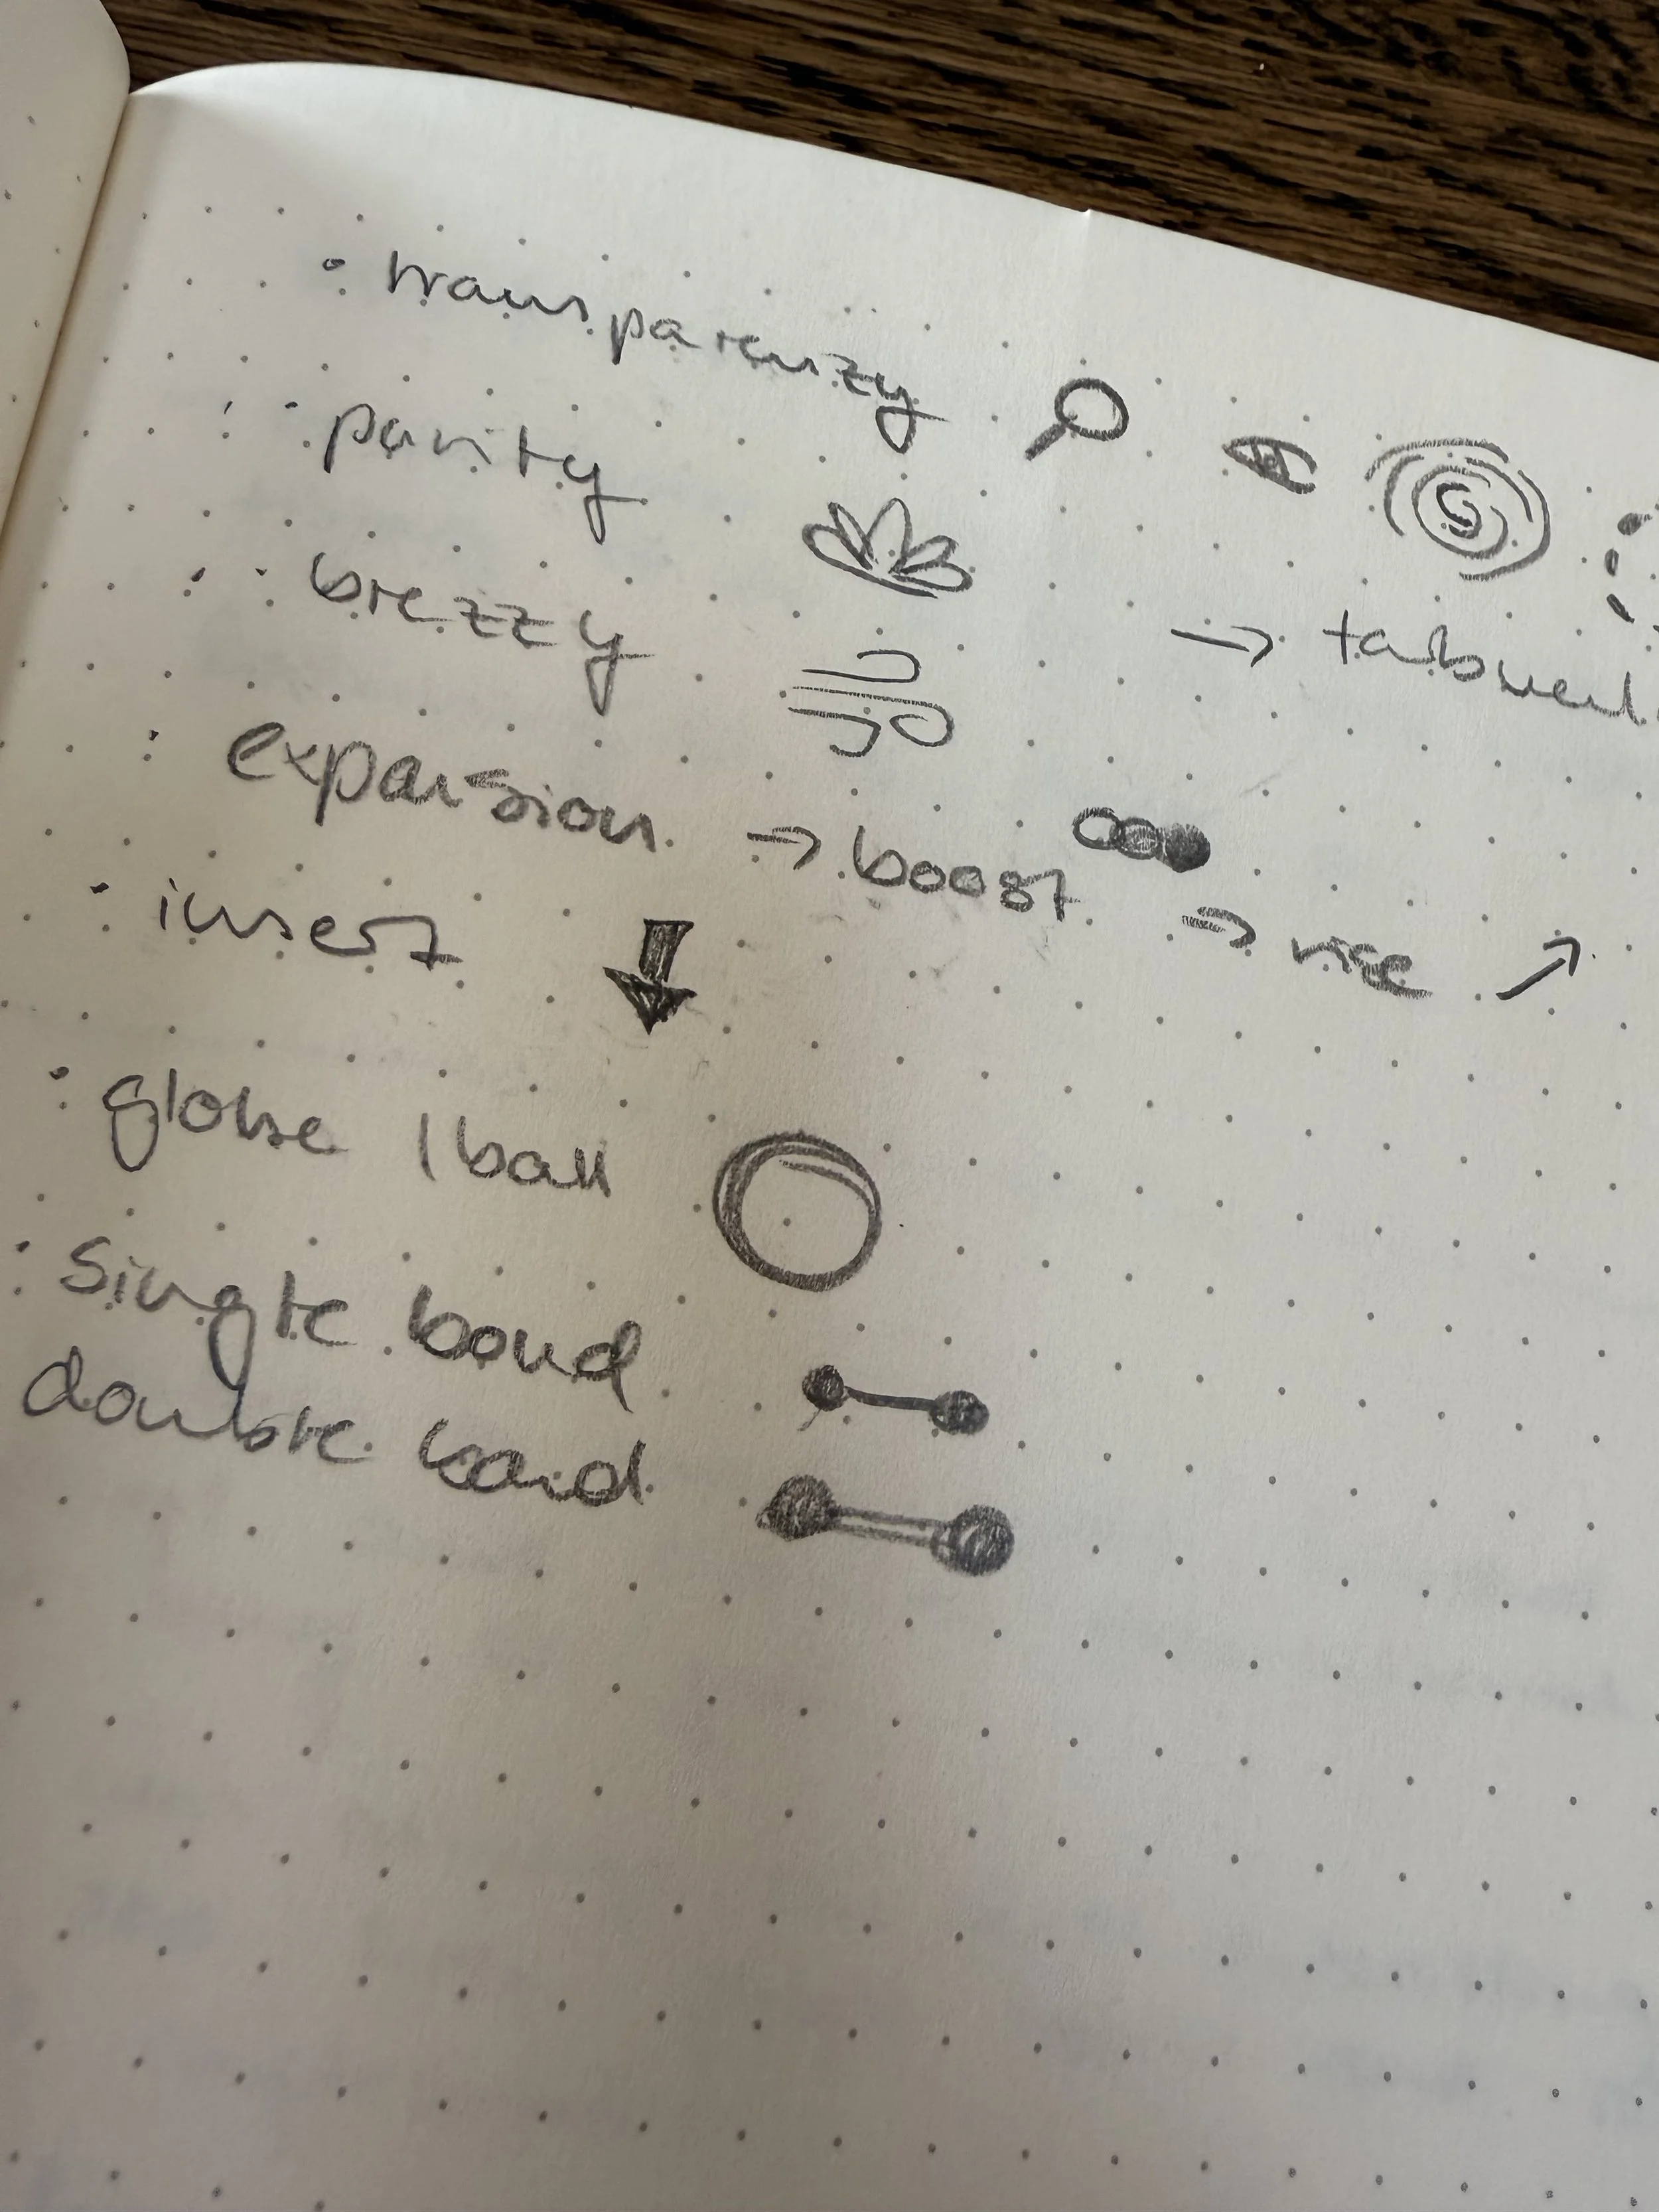 transparenzy
purity
brezzy → tubulent
expansion → boost → rise
insert
globe / ball
single bond
double bond